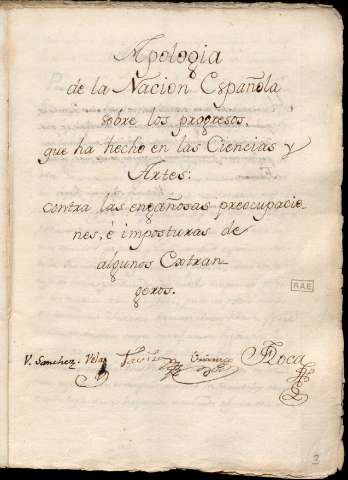 Apologia
de la Nacion Española
sobre los progresos,
que ha hecho en las Ciencias y
Artes:
contra las engañosas preocupacio-
nes, é imposturas de
algunos Extran-
geros.
RAE
V. Sanchez. Roca
3